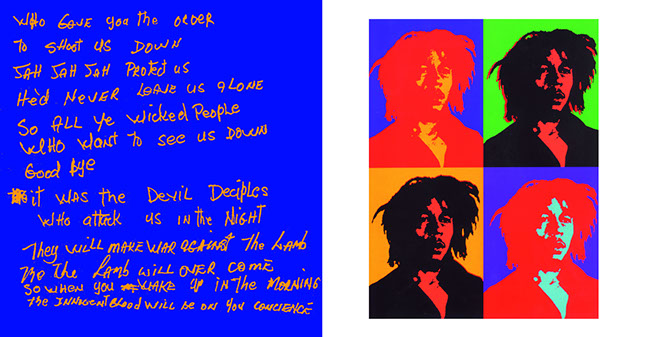 WHO GAVE you the ORDER
to SHOOT US DOWN
JAH JAH JAH Protect us
He'd NEVER LEAVE US ALONE
So ALL Ye Wicked People
WHO WANT to see us DOWN
Good bye
it WAS the DEVIL DECIPLES
WHO attack US IN the NIGHT
They WILL MAKE WAR AGAINST The LAMB
The LAMB WILL OVER COME
SO WHEN YOU WAKE UP IN THE MORNING
the INNOCENT Blood WILL BE ON YOU CONCIENCE